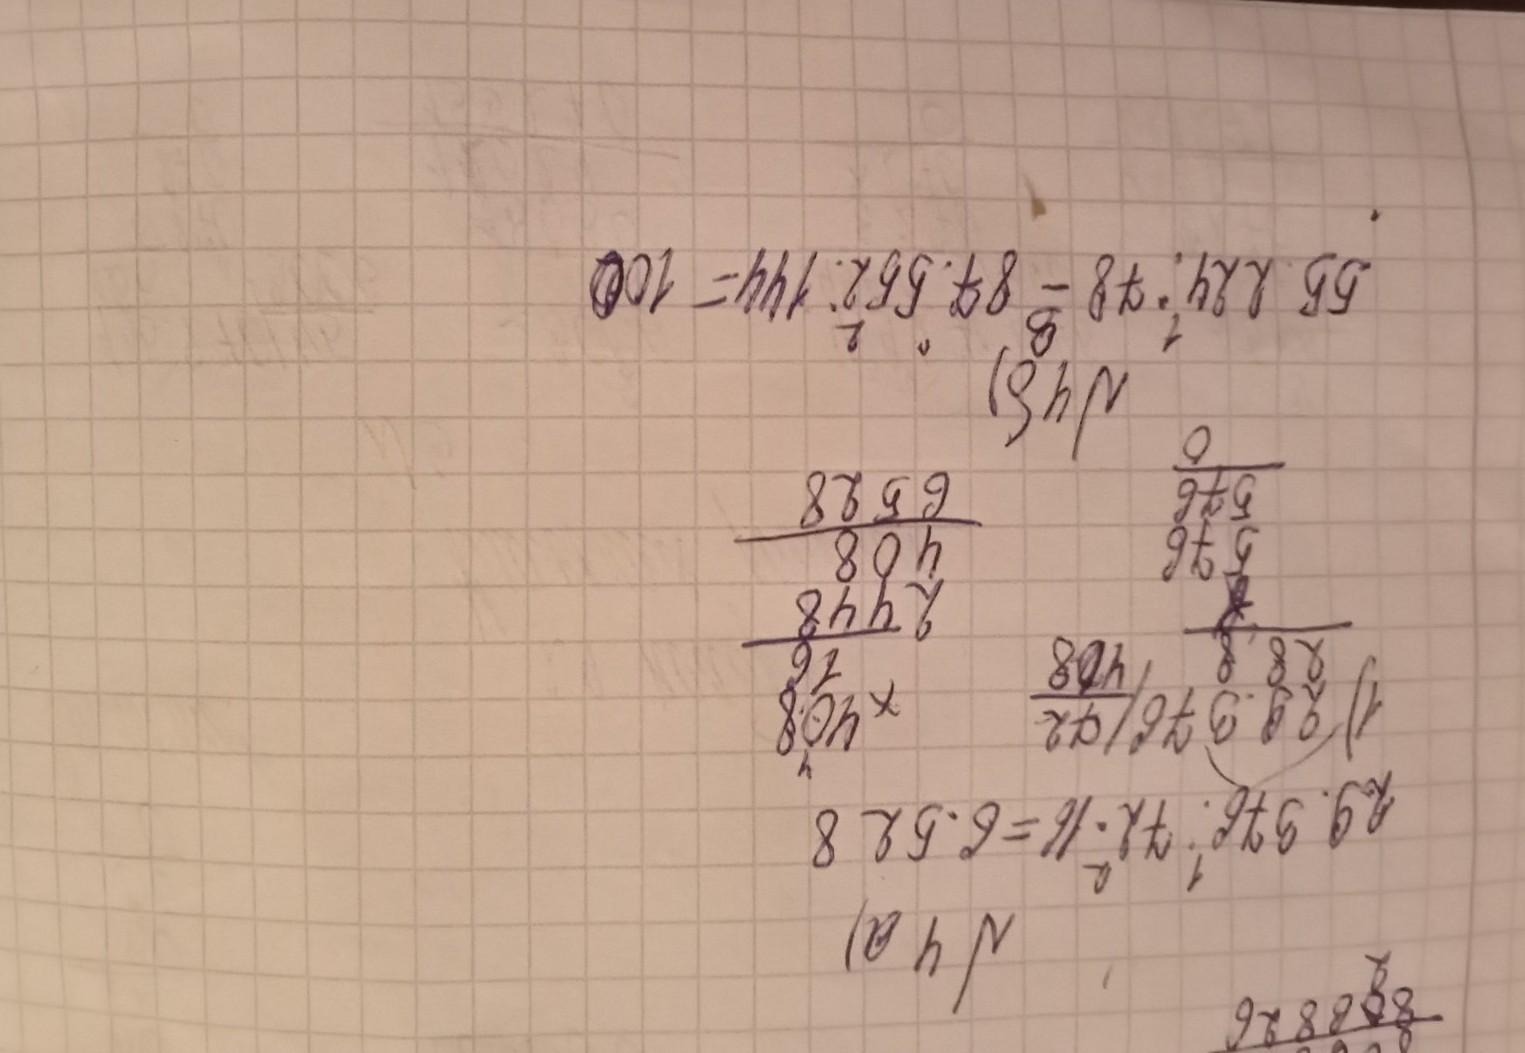 808826
2
№4 а)
1 2
29.376:72·16=6.528
1) 29.376|72
288 408
576
576
0
4
×408
16
2448
408
6528
№4 б)
1 3 2
55.224:78-87.552:144=100